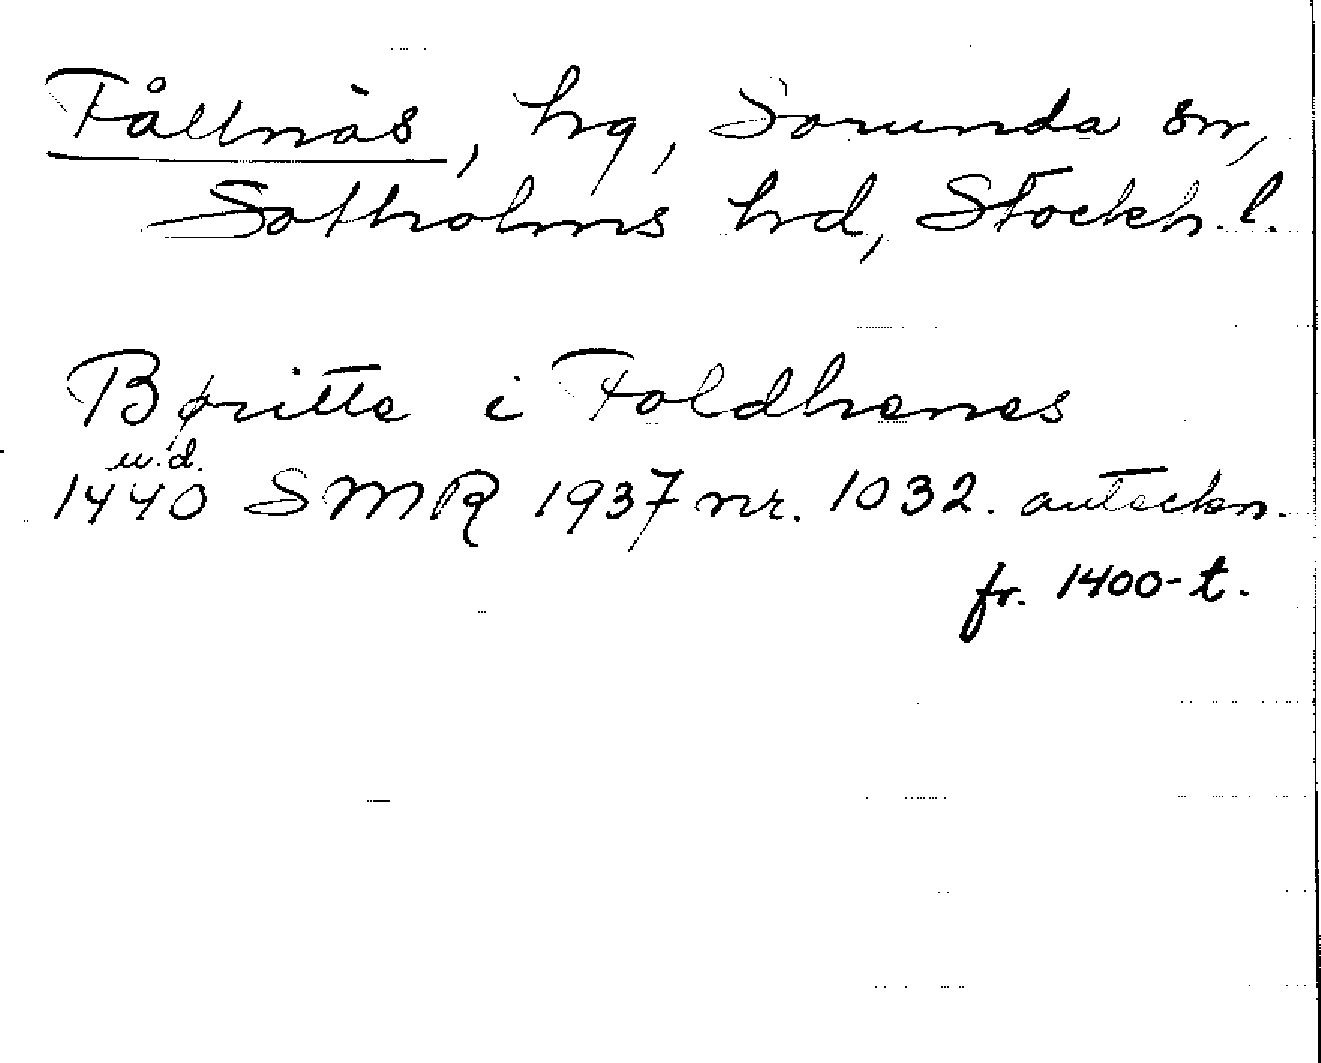 Fållnäs, hrg, Sorunda sn,
Sotholms hrd, Stockh. l.
Børitte i Foldhenes
u.d.
1440 SMR 1937 nr. 1032. anteckn.
fr. 1400-t.